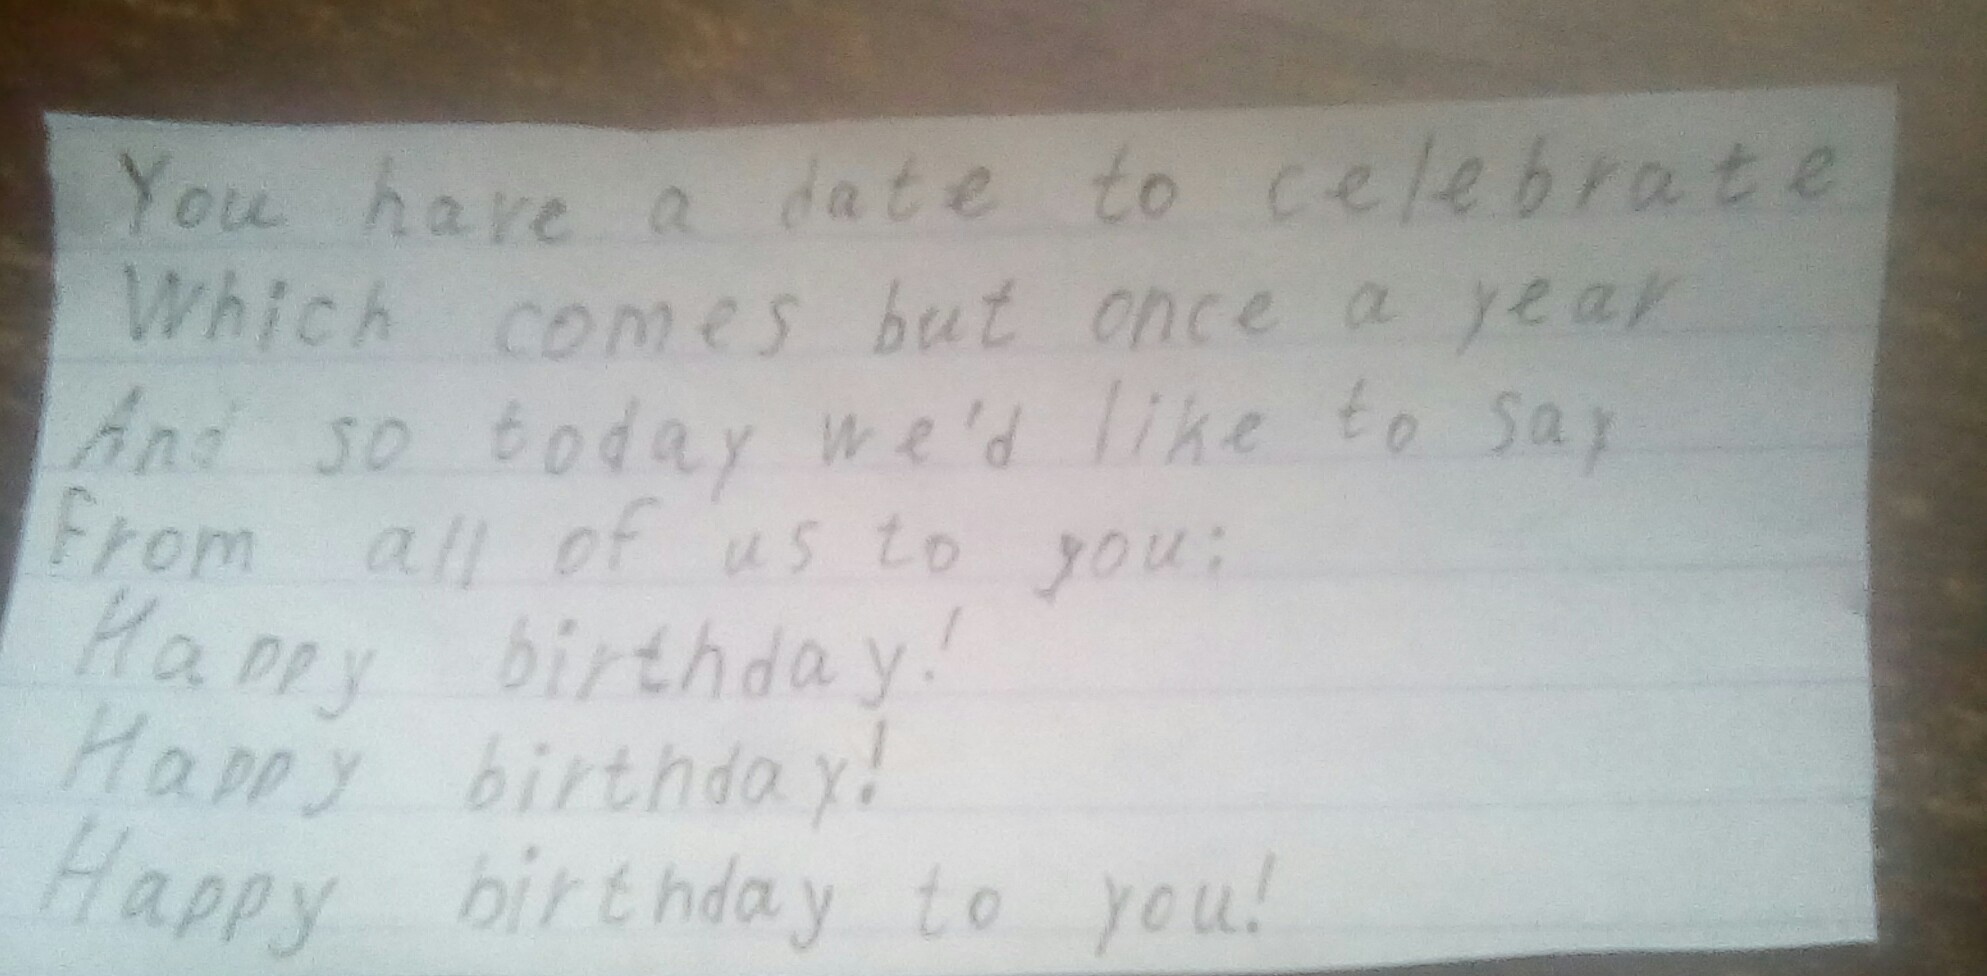 You have a date to celebrate
Which comes but once a year
And so today we'd like to say
From all of us to you:
Happy birthday!
Happy birthday!
Happy birthday to you!